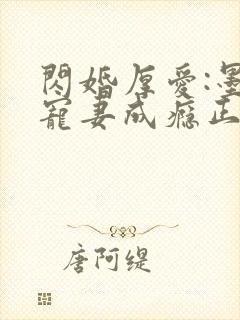 閃婚厚愛:墨
寵妻成癮正
唐阿緹